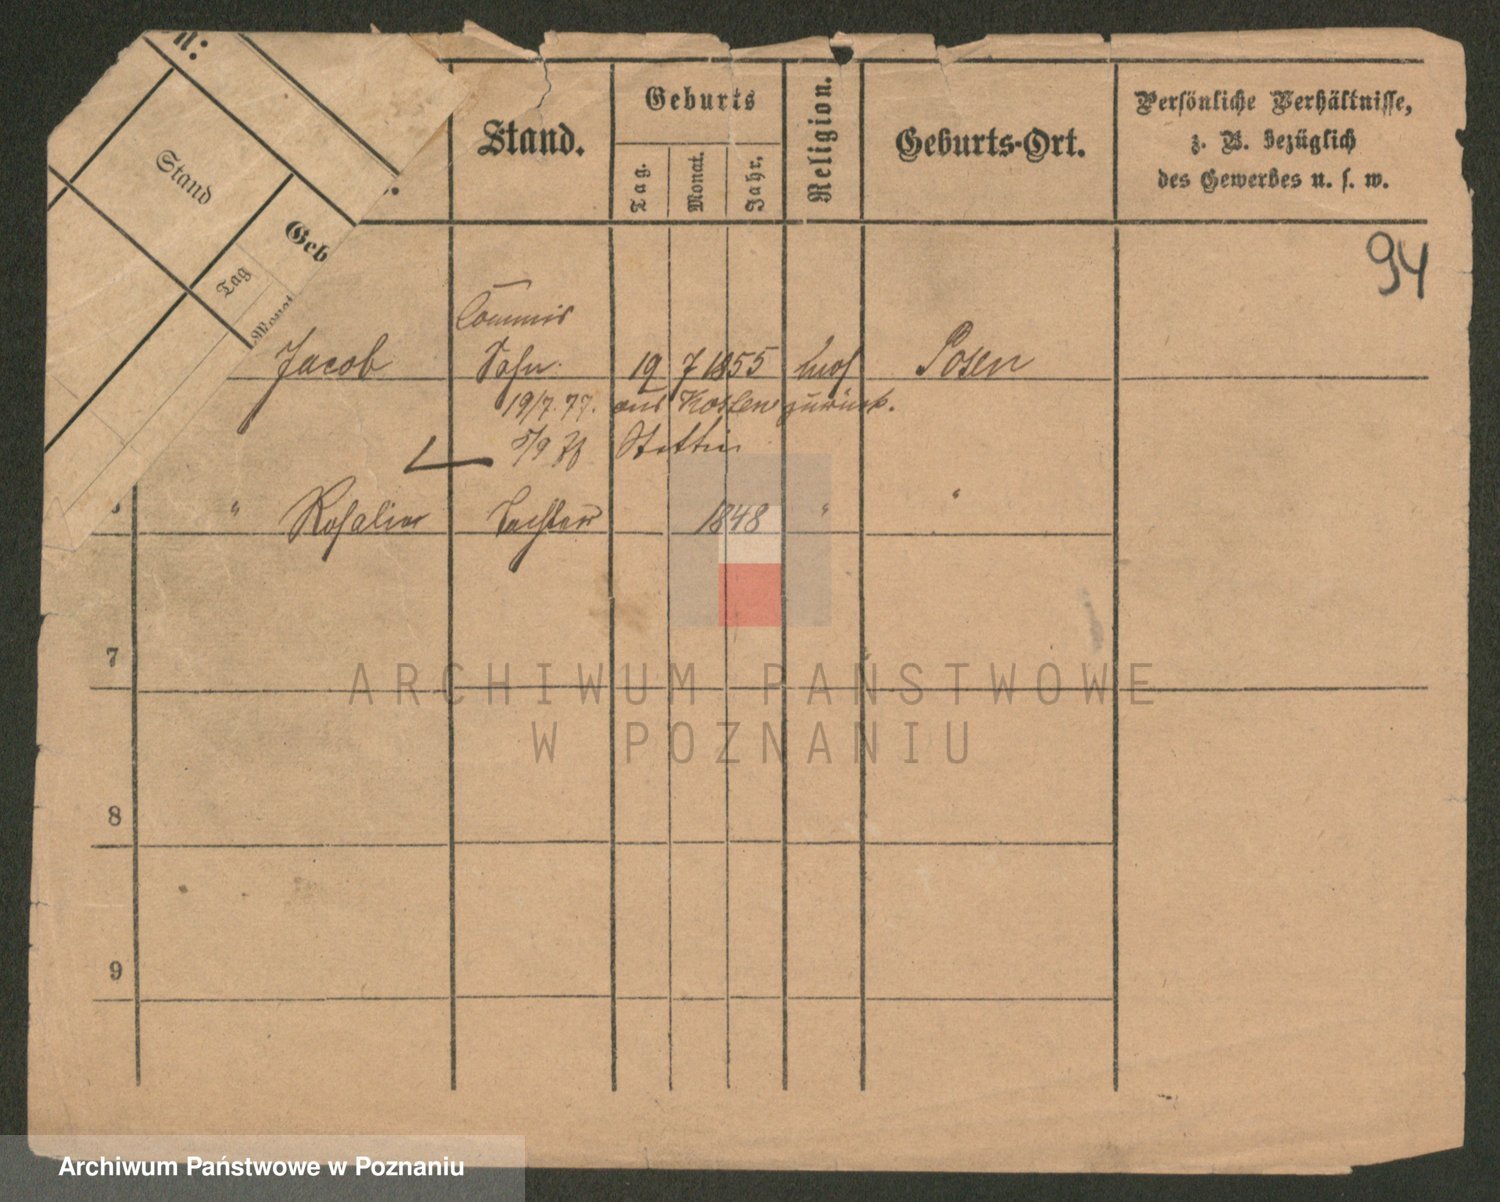 n:
Stand
Geb
Tag
Monat
Stand.
Geburts
Tag.
Monat.
Jahr.
Religion.
Geburts-Ort.
Persönliche Verhältnisse,
z. B. bezüglich
des Gewerbes u. s. w.
94
Commis
Jacob Sohn 19 7 1855 mos Posen
19/7. 77. aus Kosten zurück.
5/9 78 Stettin
" Rosalie Tochter 1848 " "
7
8
9
ARCHIWUM PAŃSTWOWE
W POZNANIU
Archiwum Państwowe w Poznaniu